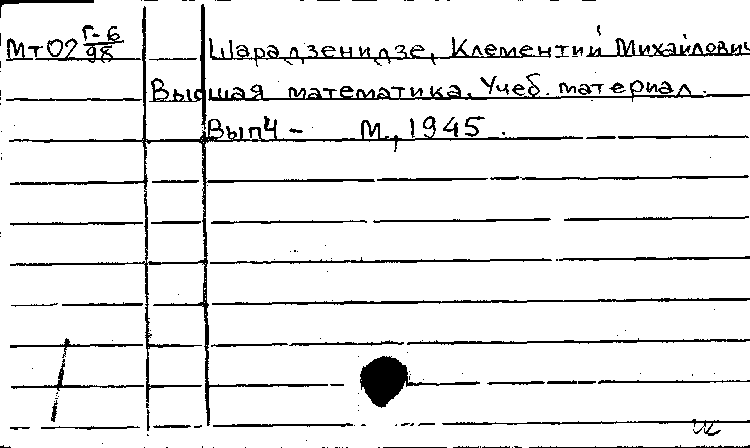 Мт02 Г-6/98 Шарадзенидзе, Клементий Михайлович
Высшая математика. Учеб. материал.
Вып 4 - М., 1945.